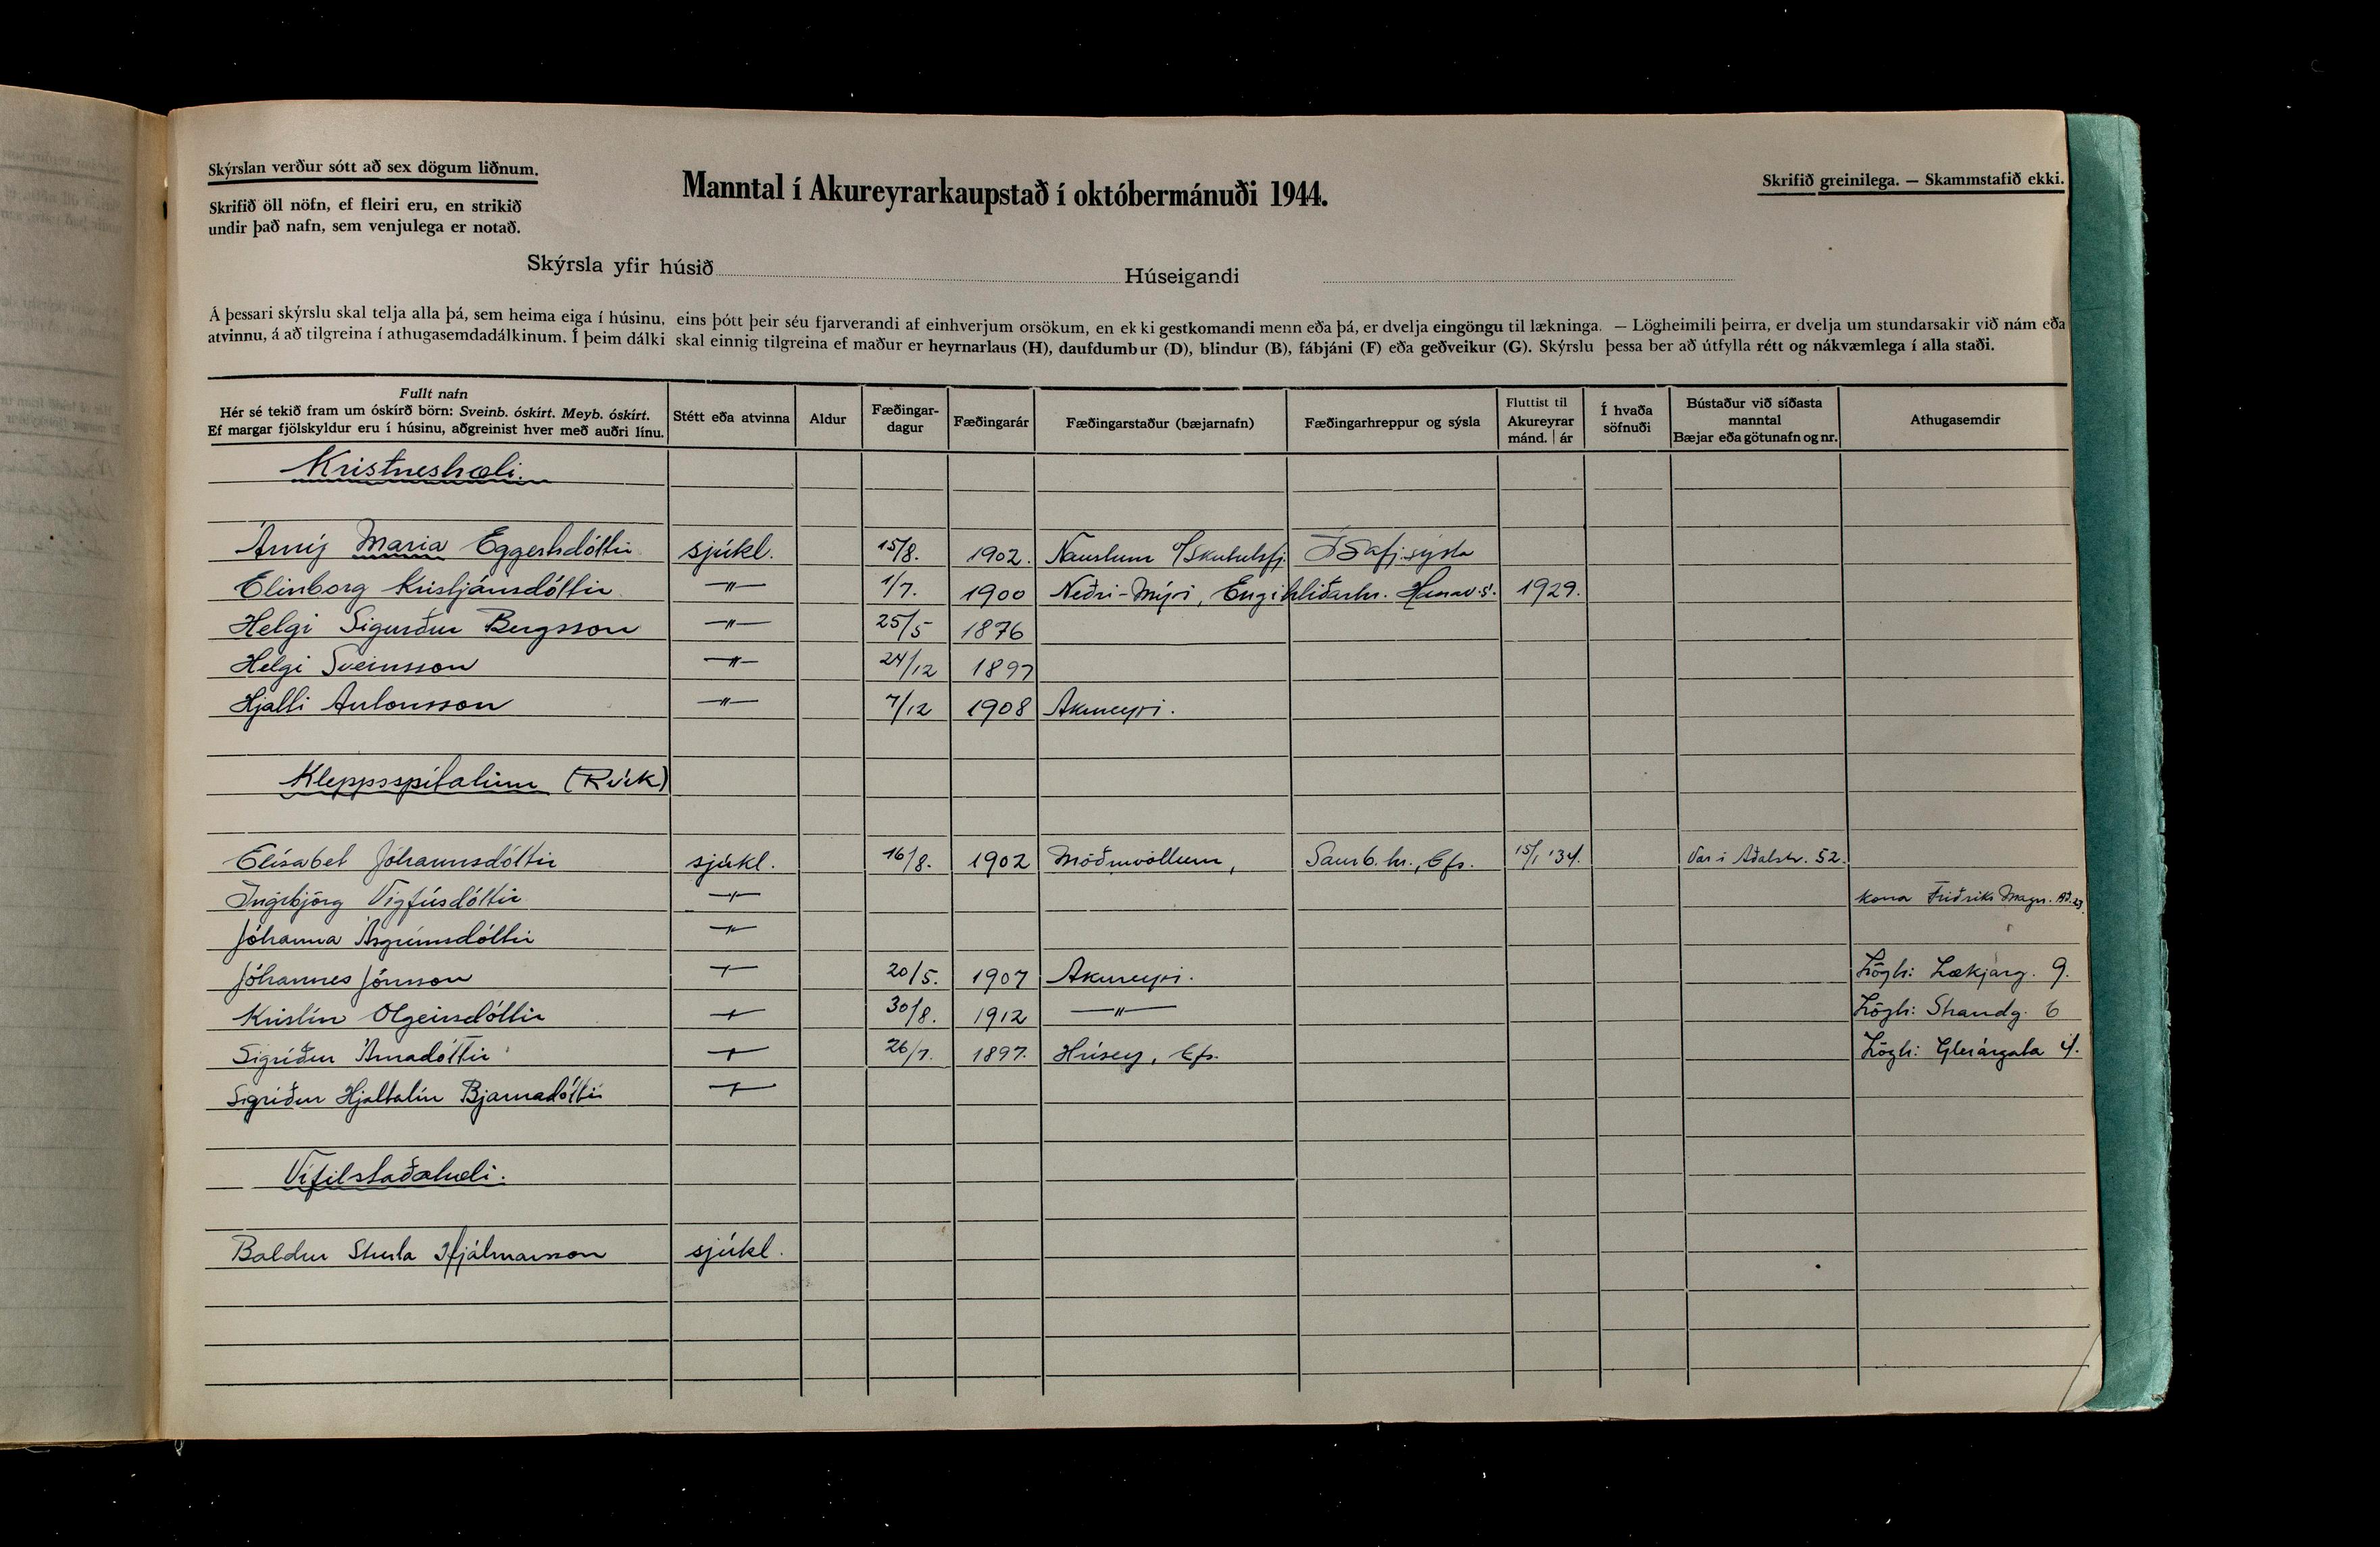 Skýrslan verður sótt að sex dögum liðnum.
Manntal í Akureyrarkaupstað í októbermánuði 1944.
Skrifið greinilega. — Skammstafið ekki.
Skrifið öll nöfn, ef fleiri eru, en strikið
undir það nafn, sem venjulega er notað.
Skýrsla yfir húsið Húseigandi
Á þessari skýrslu skal telja alla þá, sem heima eiga í húsinu, eins þótt þeir séu fjarverandi af einhverjum orsökum, en ekki gestkomandi menn eða þá, er dvelja eingöngu til lækninga. — Lögheimili þeirra, er dvelja um stundarsakir við nám eða
atvinnu, á að tilgreina í athugasemdadálkinum. Í þeim dálki skal einnig tilgreina ef maður er heyrnarlaus (H), daufdumbur (D), blindur (B), fábjáni (F) eða geðveikur (G). Skýrslu þessa ber að útfylla rétt og nákvæmlega í alla staði.
Fullt nafn
Hér sé tekið fram um óskírð börn: Sveinb. óskírt. Meyb. óskírt.
Ef margar fjölskyldur eru í húsinu, aðgreinist hver með auðri línu.
Stétt eða atvinna
Aldur
Fæðingar-
dagur
Fæðingarár
Fæðingarstaður (bæjarnafn)
Fæðingarhreppur og sýsla
Fluttist til
Akureyrar
mánd. | ár
Í hvaða
söfnuði
Bústaður við síðasta
manntal
Bæjar eða götunafn og nr.
Athugasemdir
Kristneshæli.
Árný Maria Eggertsdóttir sjúkl. 15/8. 1902. Naustum Skutulsfj. Ísafj.sýsla
Elinborg Kristjánsdóttir —"— 1/7. 1900 Neðri-Mýri, Engihlíðarhr. Hunav.s. 1929.
Helgi Sigurður Bergsson —"— 25/5 1876
Helgi Sveinsson —"— 24/12 1897
Hjalti Antonsson —"— 7/12 1908 Akureyri.
Kleppsspítalinn (Rvík)
Elísabet Jóhannsdóttir sjúkl. 16/8. 1902 Möðruvöllum, Saurb.hr., Efs. 15/1 '34. Var í Aðalstr. 52.
Ingibjörg Vigfúsdóttir —"— kona Friðriks Magn. Að. 23.
Jóhanna Ásgrímsdóttir —"—
Jóhannes Jónsson —"— 20/5. 1907 Akureyri. Lögh: Lækjarg. 9.
Kristín Olgeirsdóttir —"— 30/8. 1912 —"— Lögh: Strandg. 6
Sigríður Árnadóttir —"— 26/7. 1897. Hrísey, Efs. Lögh: Glerárgata 4.
Sigríður Hjaltalín Bjarnadóttir —"—
Vífilstaðahæli.
Baldur Sturla Hjálmarsson sjúkl.